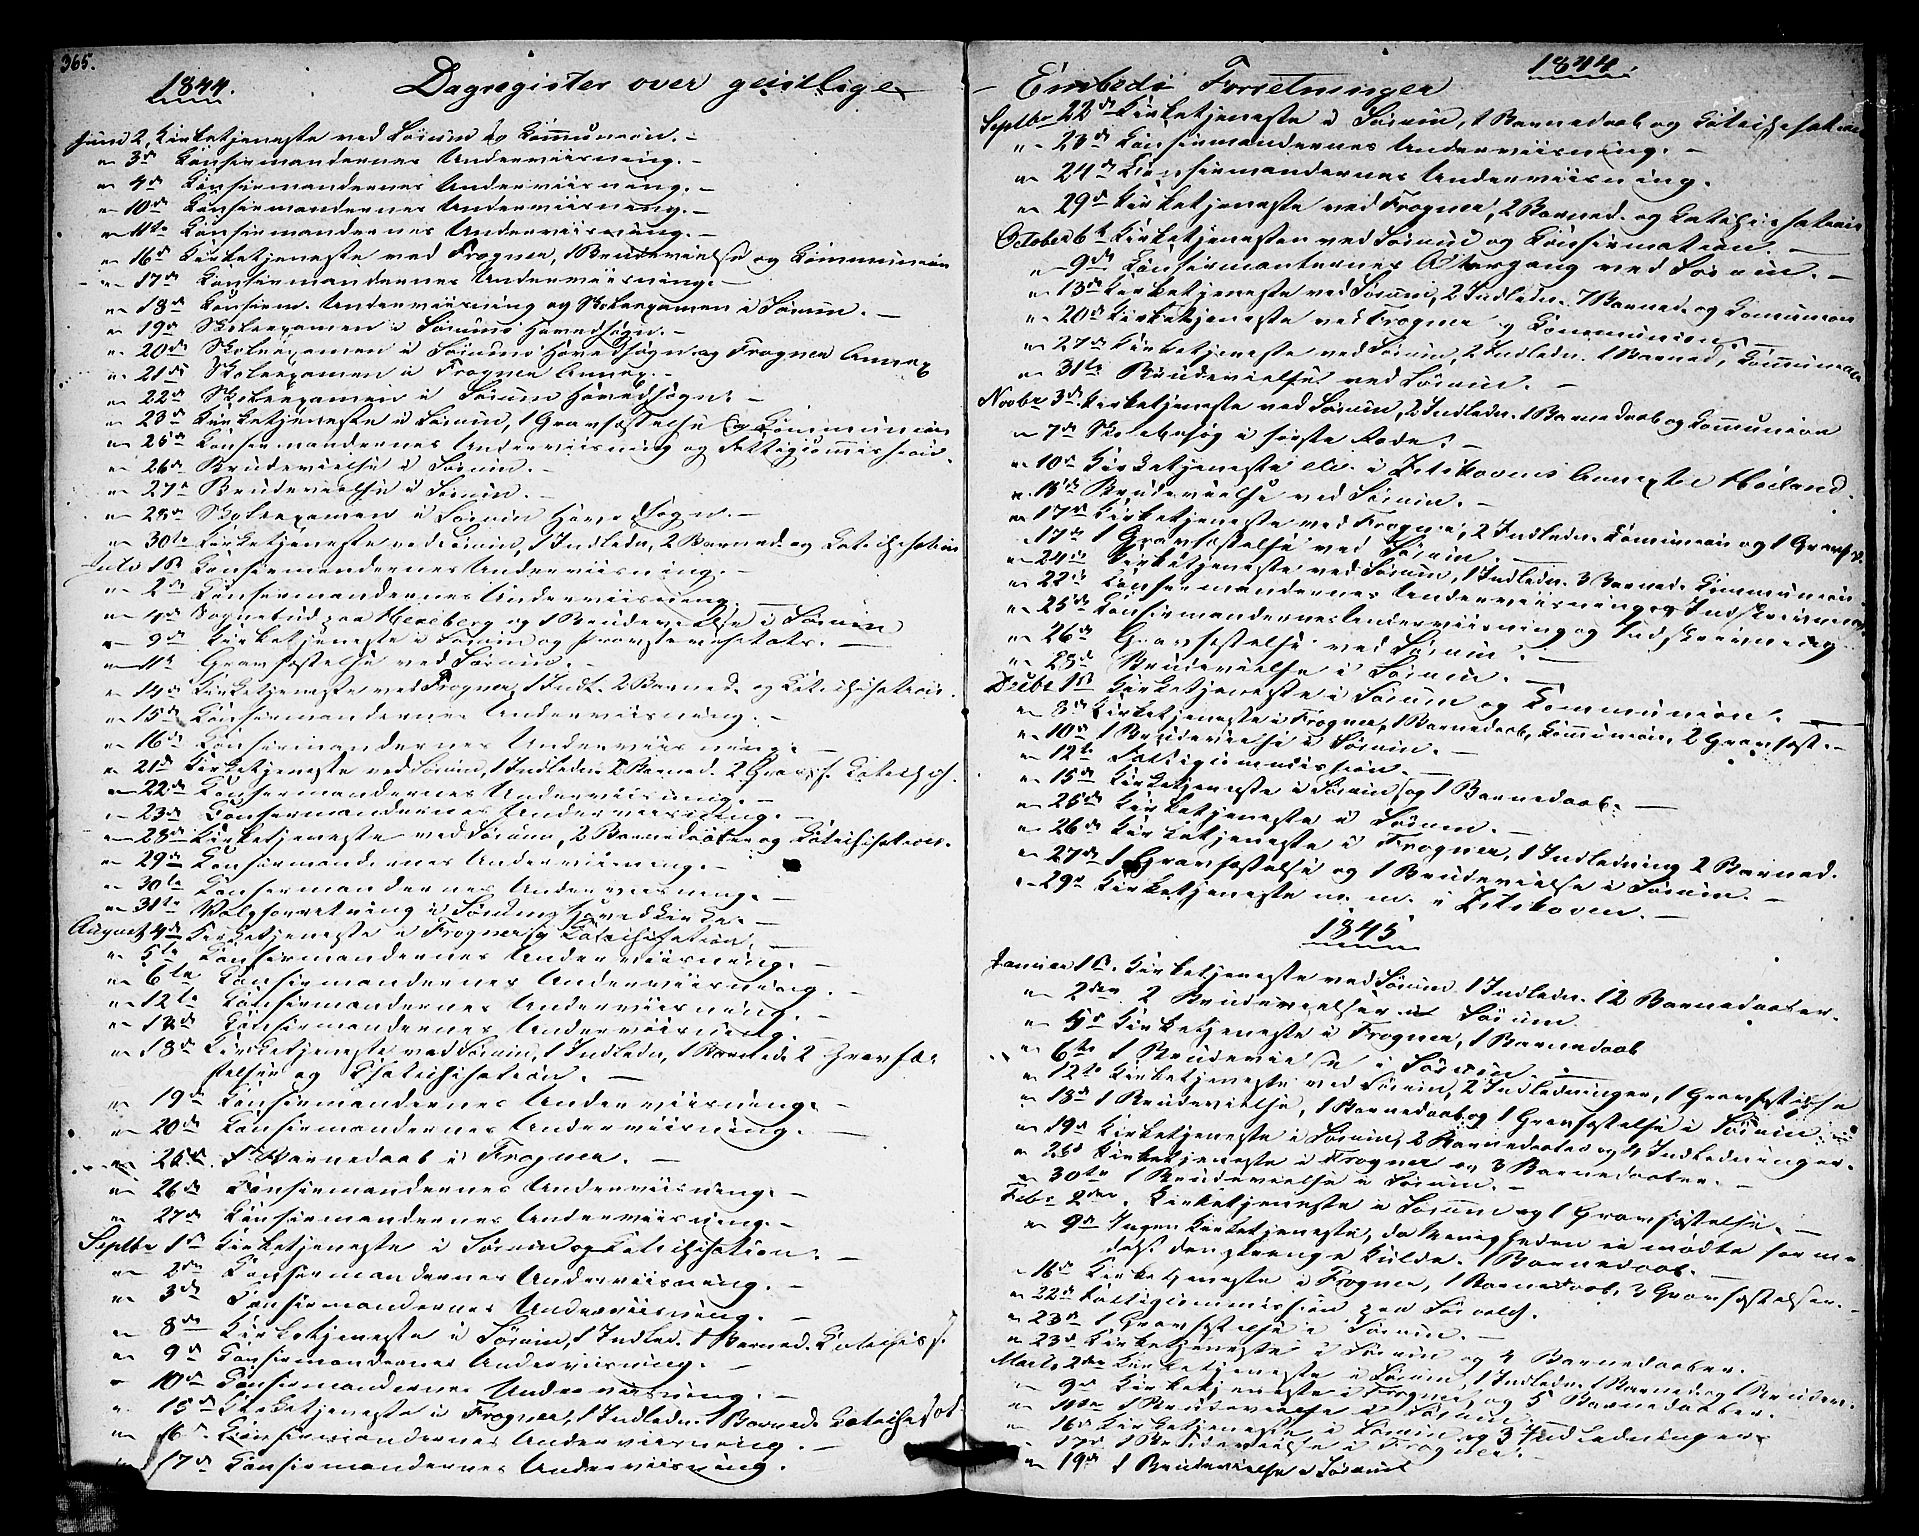 365.
1844.
Dagregister over geistlige
Juni 2, Kirketjeneste ved Sörum og Communion. -
" 3d Konfirmandernes Underviisning. -
" 4d Konfirmandernes Underviisning. -
" 10de Konfirmandernes Underviisning. -
" 11te Konfirmandernes Underviisning. -
" 16d Kirketjeneste ved Frogner, 1 Brudevielse og Communion
" 17de Konfirmandernes Underviisning. -
" 18de Konfirm. Underviisning og Skoleexamen i Sörum. -
" 19de Skoleexamen i Sörums Hovedsogn. -
" 20de Skoleexamen i Sörums Hovedsogn og Frogner Annex
" 21de Skoleexamen i Frogner Annex. -
" 22de Skoleexamen i Sörum Hovedsogn. -
" 23de Kirketjeneste i Sörum, 1 Gravfæstelse og Communion
" 25de Konfirmandernes Underviisning og Fattigcommission.
" 26de Brudevielse i Sörum. -
" 27d Brudevielse i Sörum. -
" 28de Skoleexamen i Sörum Hoved Sogn. -
" 30te Kirketjeneste ved Sörum, 1 Indledn, 2 Barned. og Catechisation
Juli 1st Konfirmandernes Underviisning. -
" 2de Konfirmandernes Underviisning. -
" 4de Sognebud paa Heieberg og 1 Brudevielse i Sörum
" 9de Kirketjeneste i Sörum og Provstevisitats. -
" 11te Gravfæstelse ved Sörum. -
" 14de Kirketjeneste ved Frogner, 1 Indl. 2 Barned. og Catechisation.
" 15de Konfirmandernes Underviisning. -
" 16de Konfirmandernes Underviisning. -
" 21de Kirketjeneste ved Sörum, 1 Indledn. 2 Barned. 2 Gravf. Catechis.
" 22de Konfirmandernes Underviisning. -
" 23de Konfirmandernes Underviisning. -
" 28de Kirketjeneste ved Sörum, 2 Barnedaaber og Catechisation.
" 29de Konfirmandernes Underviisning. -
" 30te Konfirmandernes Underviisning. -
" 31te Valgforretning i Sörums Hovedkirke. -
August 4de Kirketjeneste i Frogner og Catechisation. -
" 5te Konfirmandernes Underviisning. -
" 6te Konfirmandernes Underviisning. -
" 12te Konfirmandernes Underviisning. -
" 13de Konfirmandernes Underviisning. -
" 18de Kirketjeneste ved Sörum, 1 Indledn, 1 Barned. 2 Gravfæ-
stelser og Chatechisation. -
" 19de Konfirmandernes Underviisning. -
" 20de Konfirmandernes Underviisning. -
" 25de 1 Barnedaab i Frogner. -
" 26de Konfirmandernes Underviisning. -
" 27de Konfirmandernes Underviisning. -
Septbr 1st Kirketjeneste i Sörum og Catechisation. -
" 2den Konfirmandernes Underviisning. -
" 3de Konfirmandernes Underviisning. -
" 8de Kirketjeneste i Sörum, 1 Indled. 1 Barned. Catechis.
" 9de Konfirmandernes Underviisning. -
" 10de Konfirmandernes Underviisning. -
" 15de Kirketjeneste i Frogner, 1 Indledn. 1 Barned. Catechisat.
" 16d. Konfirmandernes Underviisning. -
" 17de Konfirmandernes Underviisning.
1844.
- Embeds Forretninger
Septbr 22de Kirketjeneste i Sörum, 1 Barnedaab og Catechisation
" 23de Konfirmandernes Underviisning. -
" 24de Konfirmandernes Underviisning.
" 29de Kirketjeneste ved Frogner, 2 Barned. og Catechisation
October 6te Kirketjenesten ved Sörum og Confirmation -
" 9de Confirmanternes Altergang ved Sörum. -
" 13de Kirketjeneste ved Sörum, 2 Indledn. 7 Barned. og Comunion
" 20de Kirketjeneste ved Frogner og Communion. -
" 27de Kirketjeneste ved Sörum, 2 Indledn. 1 Barned, Communion
" 31te Brudevielse ved Sörum. -
Novbr 3de Kirketjeneste ved Sörum, 2 Indledn. 1 Barnedaab og Communion
" 7de Skolebesög i förste Rode. -
" 10de Kirketjeneste etc. i Zeitskovens Annexter Höiland.
" 15de Brudevielse ved Sörum. -
" 17de Kirketjeneste ved Frogner, 2 Indledn. Comunion og 1 Gravfæst.
17de 1 Gravfæstelse ved Sörum. -
" 24de Kirketjeneste ved Sörum, 1 Indledn. 3 Barned. Communion.
" 22de Konfirmandernes Underviisning og Indskrivning.
" 25de Konfirmandernes Underviisning og Indskrivning
" 26de Gravfæstelse ved Sörum. -
" 28de Brudevielse i Sörum. -
Decbr 1st Kirketjeneste i Sörum og Communion. -
" 8de Kirketjeneste i Frogner, 1 Barnedaab, Communion, 2 Gravfæst. -
" 10de 1 Brudevielse i Sörum. -
" 12te Fattigcommission. -
" 15de Kirketjeneste i Sörum og 1 Barnedaab. -
" 25de Kirketjeneste i Sörum. -
" 26de Kirketjeneste i Frogner, 1 Indledning 2 Barned.
" 27de 1 Gravfæstelse og 1 Brudevielse i Sörum. -
" 29de Kirketjeneste m. m. i Zeitskoven. -
1845
Januar 1st. Kirketjeneste ved Sörum 1 Indledn. 12 Barnedaaber.
" 2den 2 Brudevielser i Sörum.
" 5d Kirketjeneste i Frogner, 1 Barnedaab
" 6te 1 Brudevielse i Sörum. -
" 12te Kirketjeneste ved Sörum, 2 Indledninger, 1 Gravfæstelse
" 18de 1 Brudevielse, 1 Barnedaab og 1 Gravfæstelse i Sörum.
" 19d Kirketjeneste i Sörum, 2 Barnedaaber og 4 Indledninger.
" 26d Kirketjeneste i Frogner og 3 Barnedaaber. -
" 30te 1 Brudevielse i Sörum. -
Febr 2den. Kirketjeneste i Sörum og 1 Gravfæstelse. -
" 9de Ingen Kirketjeneste, da Menigheden ei mödte forme-
delst den strenge Kulde. 1 Barnedaab. -
" 16de Kirketjeneste i Frogner, 1 Barnedaab, 3 Gravfæstelser. -
" 22de Fattigcommission paa Sörvald.
" 23de 1 Gravfæstelse i Sörum. -
" 23d Kirketjeneste i Sörum og 4 Barnedaaber.
Marts 2den Kirketjeneste i Sörum, 1 Indledn. 1 Barned og 1 Brudev.
" 9de Kirketjeneste i Frogner, og 5 Barnedaaber.
" 11te 1 Brudevielse i Sörum.
" 16de Kirketjeneste i Sörum og 3 Indledninger.
" 17de 1 Brudevielse i Frogner. -
" 19de 1 Brudevielse i Sörum